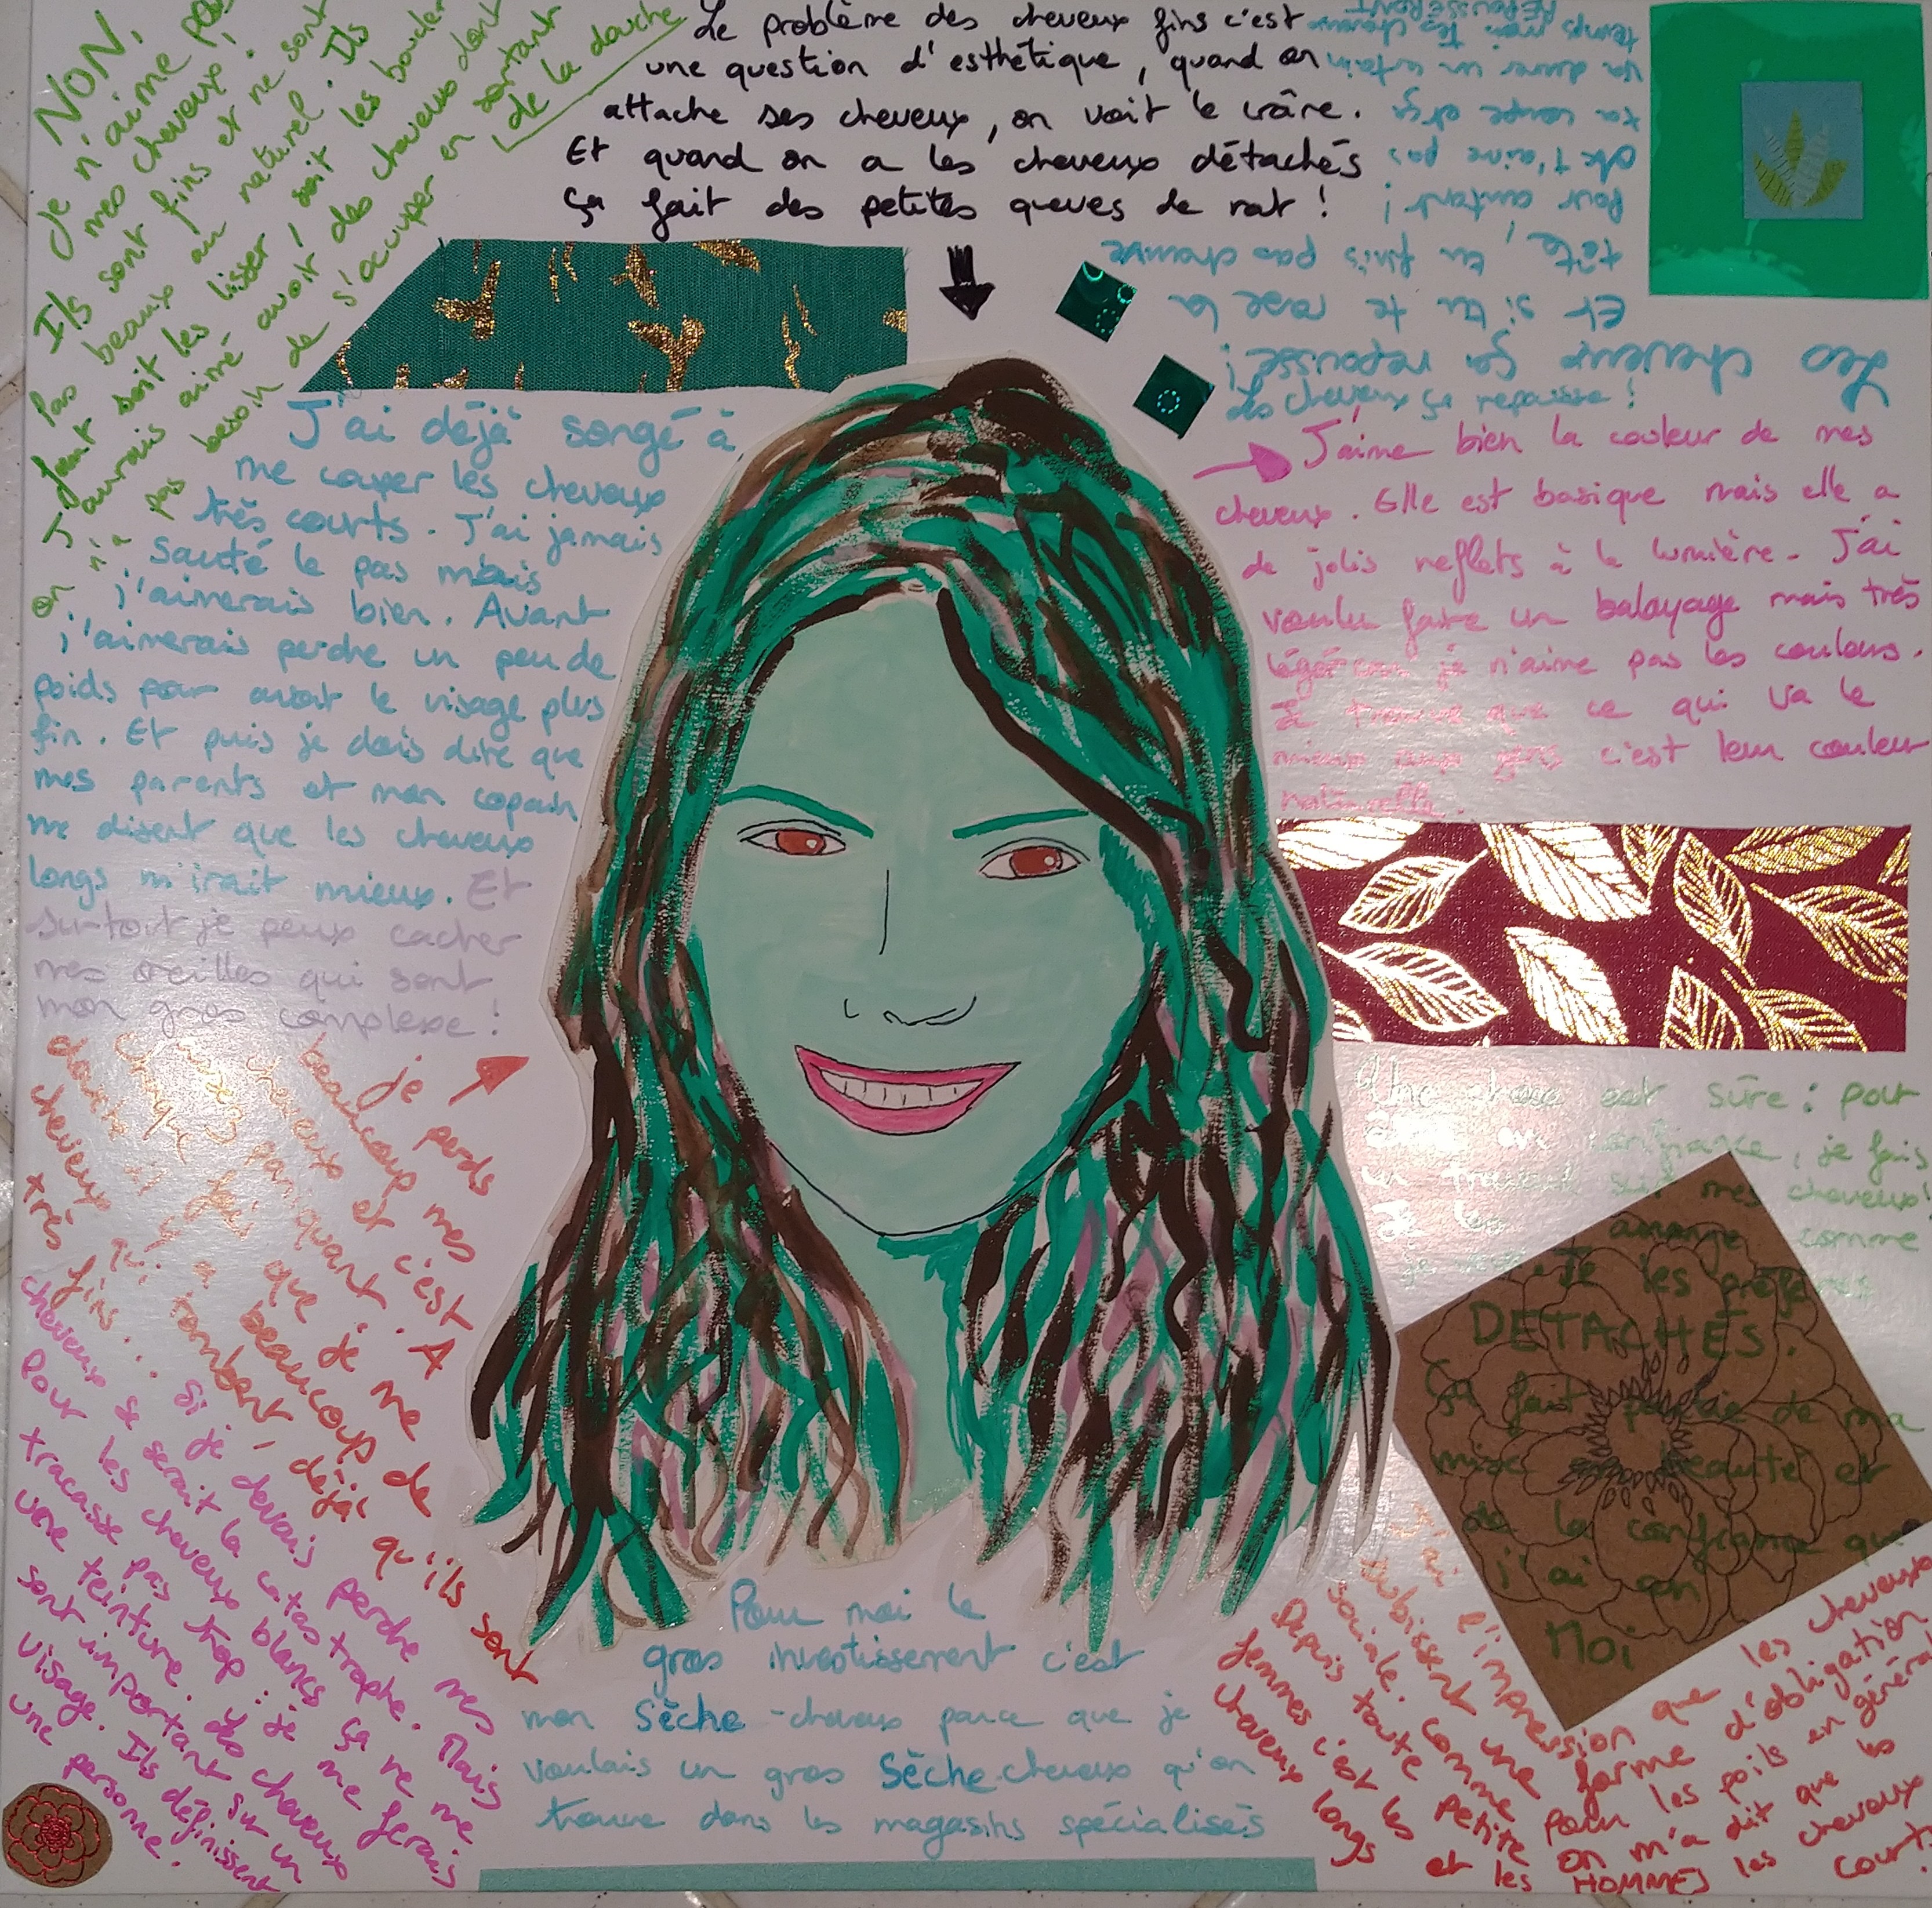 NON,
je n'aime pas
mes cheveux !
Ils sont fins et ne sont
pas beaux au naturel. Ils
faut soit les lisser, soit les boucler
J'aurais aimé avoir des cheveux dont
on n'a pas besoin de s'occuper en sortant
de la douche
Le problème des cheveux fins c'est
une question d'esthétique, quand on
attache ses cheveux, on voit le crâne.
Et quand on a les cheveux détachés
ça fait des petites queues de rat !
Les cheveux ça repousse !
Et si tu te rase la
tête, tu finis pas chauve
pour autant !
Si t'aime pas
ta coupe et ça
va durer un certain
temps mais tes cheveux
REPOUSSERONT
Les cheveux ça repousse !
J'ai déjà songé à
me couper les cheveux
très courts. J'ai jamais
sauté le pas mais
j'aimerais bien. Avant
j'aimerais perdre un peu de
poids pour avoir le visage plus
fin. Et puis je dois dire que
mes parents et mon copain
me disent que les cheveux
longs m'irait mieux. Et
surtout je peux cacher
mes oreilles qui sont
mon gros complexe !
J'aime bien la couleur de mes
cheveux. Elle est basique mais elle a
de jolis reflets à la lumière. J'ai
voulu faire un balayage mais très
léger car je n'aime pas les couleurs.
Je trouve que ce qui va le
mieux aux gens c'est leur couleur
naturelle.
Je perds
beaucoup mes
cheveux et c'est
paniquant. A
chaque fois que je me
douche il y a beaucoup de
cheveux qui tombent, déjà qu'ils sont
très fins... Si je devais perdre mes
cheveux se serait la catastrophe. Mais
pour les cheveux blancs ça ne me
tracasse pas trop : je me ferais
une teinture. Les cheveux
sont important sur un
visage. Ils définissent
une personne.
Une chose est sûre : pour
avoir confiance, je fais
un travail sur mes cheveux !
Je les arrange comme
je veux. Je les préfères
DETACHÉS.
Ça fait partie de ma
mise beauté et
de la confiance que
j'ai en
Moi
Pour moi le
gros investissement c'est
mon Sèche-cheveux parce que je
voulais un gros Sèche-cheveux qu'on
trouve dans les magasins spécialisés
J'ai l'impression que les cheveux
subissent une forme d'obligation
sociale. Comme pour les poils en général
Depuis toute petite on m'a dit que les
femmes c'est les cheveux
longs et les HOMMES les cheveux
courts.